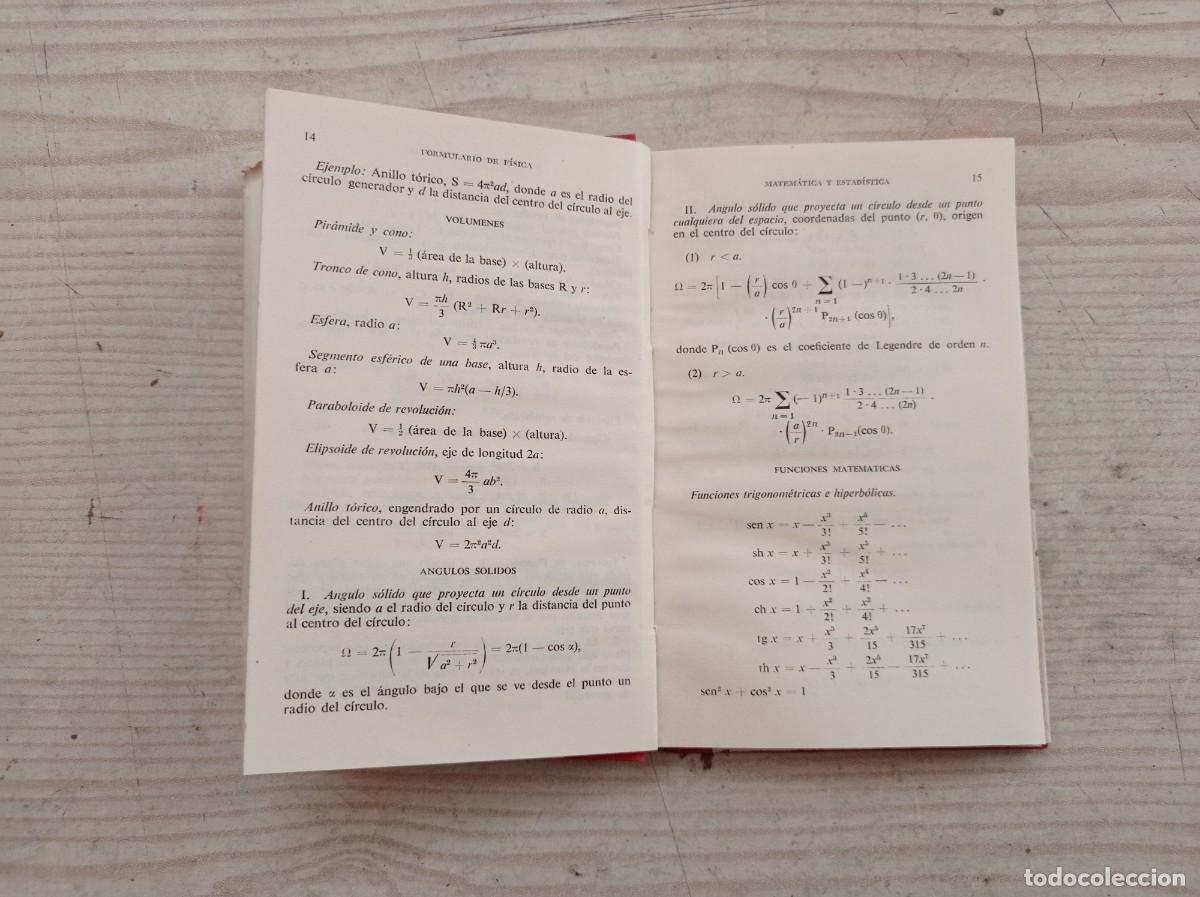 14
FORMULARIO DE FÍSICA
Ejemplo: Anillo tórico, S = 4π²ad, donde a es el radio del
círculo generador y d la distancia del centro del círculo al eje.
VOLUMENES
Pirámide y cono:
V = ⅓ (área de la base) × (altura).
Tronco de cono, altura h, radios de las bases R y r:
V = πh/3 (R² + Rr + r²).
Esfera, radio a:
V = 4/3 πa³.
Segmento esférico de una base, altura h, radio de la es-
fera a:
V = πh²(a — h/3).
Paraboloide de revolución:
V = ½ (área de la base) × (altura).
Elipsoide de revolución, eje de longitud 2a:
V = 4π/3 ab².
Anillo tórico, engendrado por un círculo de radio a, dis-
tancia del centro del círculo al eje d:
V = 2π²a²d.
ANGULOS SOLIDOS
I. Angulo sólido que proyecta un círculo desde un punto
del eje, siendo a el radio del círculo y r la distancia del punto
al centro del círculo:
Ω = 2π (1 — r/√(a² + r²)) = 2π(1 — cos α),
donde α es el ángulo bajo el que se ve desde el punto un
radio del círculo.
MATEMÁTICA Y ESTADÍSTICA
15
II. Angulo sólido que proyecta un círculo desde un punto
cualquiera del espacio, coordenadas del punto (r, θ), origen
en el centro del círculo:
(1) r < a.
Ω = 2π [1 — (r/a) cos θ + ∑ n=1 (1 —)ⁿ⁺¹ · 1·3 ... (2n—1)/2·4 ... 2n ·
· (r/a)²ⁿ⁺¹ P₂ₙ₊₁ (cos θ)],
donde Pₙ (cos θ) es el coeficiente de Legendre de orden n.
(2) r > a.
Ω = 2π ∑ n=1 (— 1)ⁿ⁺¹ 1·3 ... (2n—1)/2·4 ... (2n) ·
· (a/r)²ⁿ · P₂ₙ₋₁(cos θ).
FUNCIONES MATEMATICAS
Funciones trigonométricas e hiperbólicas.
sen x = x — x³/3! + x⁵/5! — ...
sh x = x + x³/3! + x⁵/5! + ...
cos x = 1 — x²/2! + x⁴/4! — ...
ch x = 1 + x²/2! + x²/4! + ...
tg x = x + x³/3 + 2x⁵/15 + 17x⁷/315 + ...
th x = x — x³/3 + 2x⁵/15 — 17x⁷/315 + ...
sen² x + cos² x = 1
todocoleccion